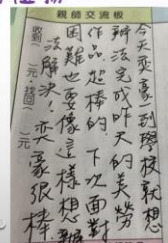 親師交流板
今天奕豪到學校就想
辦法完成昨天的美勞
作品.超棒的.下次面對
困難也要像這樣想辦
法解決!奕豪很棒
收到( )元,找回( )元